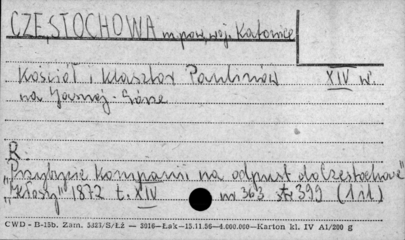 CZĘSTOCHOWA m. pow., woj. Katowice
Kościół i klasztor Paulinów XIV w.
na Jasnej-Górze
R.
"Przybycie kompanii na odpust do Częstochowy"
"Kłosy" 1872 t. XIV nr 363 str 399 (111)
CWD - B-15b. Zam. 5321/S/Łż — 2016—Łak—15.11.56—4.000.000—Karton kl. IV A1/200 g